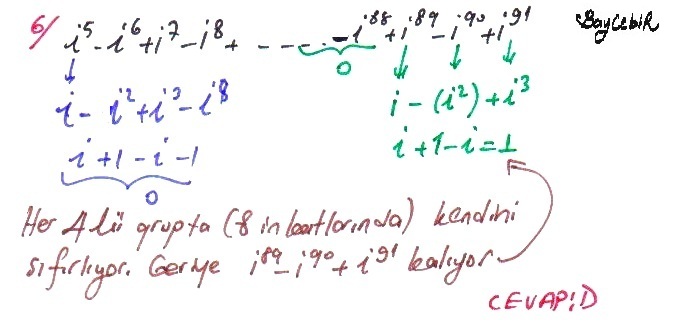 6/ i⁵-i⁶+i⁷-i⁸+ - - - - . -i⁸⁸+i⁸⁹-i⁹⁰+i⁹¹
BayCebiR
0
i- i²+i³-i⁸
i-(i²)+i³
i+1-i-1
i+1-i=1
0
Her 4 lü grupta (8 in katlarında) kendini
sıfırlıyor. Geriye i⁸⁹-i⁹⁰+i⁹¹ kalıyor
CEVAP:D